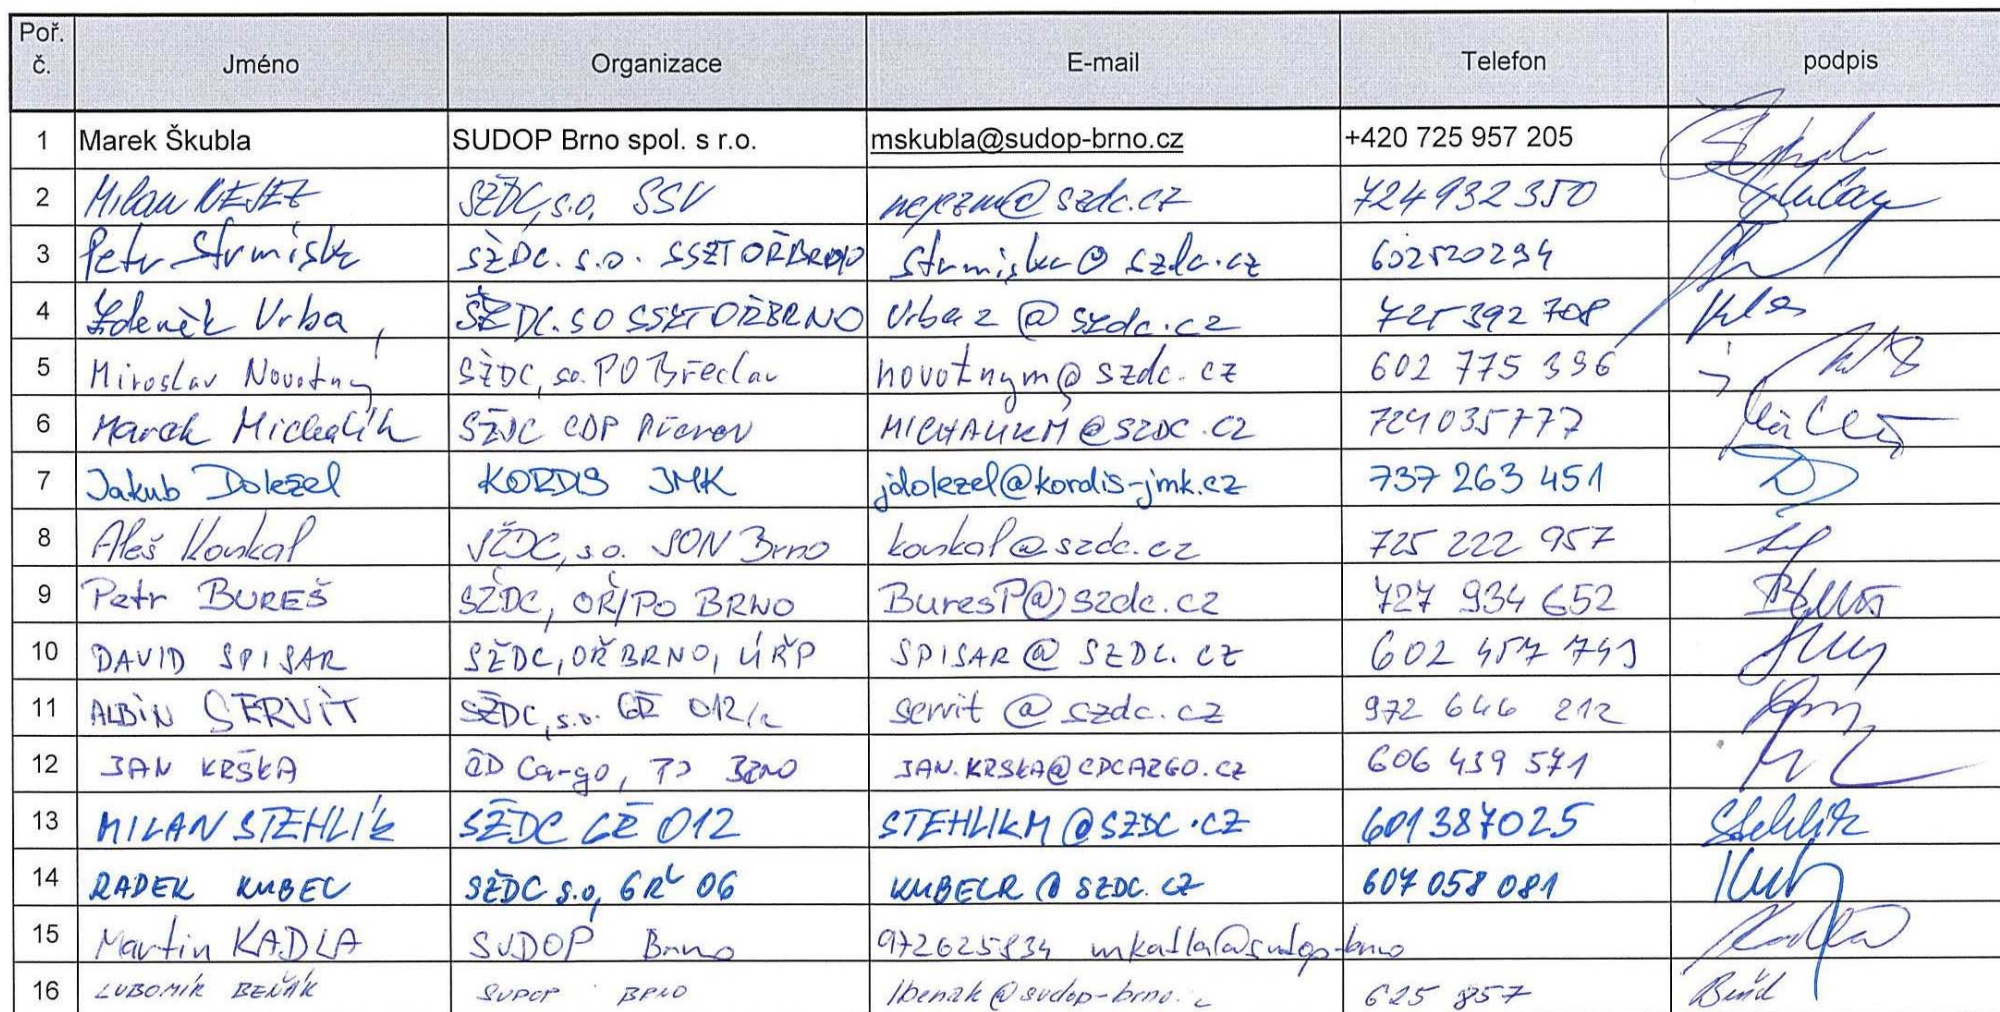 Poř. č. Jméno Organizace E-mail Telefon podpis
1 Marek Škubla SUDOP Brno spol. s r.o. mskubla@sudop-brno.cz +420 725 957 205
2 Milan NEJEZ SŽDC, s.o. SSV nejezm@szdc.cz 724932350
3 Petr Strmiska SŽDC. s.o. SSZT OŘ BRNO strmiska@szdc.cz 602520294
4 Zdeněk Vrba SŽDC. SO SSZT OŘ BRNO Vrbaz@szdc.cz 725 392 708
5 Miroslav Novotný SŽDC, so. PO Břeclav novotnym@szdc.cz 602 775 396
6 Marek Michalík SŽDC CDP Přerov MICHALIKM@SZDC.CZ 724035777
7 Jakub Doležel KORDIS JMK jdolezel@kordis-jmk.cz 737 263 451
8 Aleš Koukal SŽDC, s.o. SON Brno koukal@szdc.cz 725 222 957
9 Petr BUREŠ SŽDC, OŘ/PO BRNO BuresP@szdc.cz 727 934 652
10 DAVID SPISAR SŽDC, OŘ BRNO, ÚŘP SPISAR@SZDC.CZ 602 457 743
11 ALBÍN SERVÍT SŽDC, s.o. GŘ O12/2 servit@szdc.cz 972 646 212
12 JAN KRŠKA ČD Cargo, PJ BRNO JAN.KRSKA@CDCARGO.CZ 606 439 571
13 MILAN STEHLÍK SŽDC GŘ O12 STEHLIKM@SZDC.CZ 601387025 Stehlík
14 RADEK KUBEC SŽDC s.o, GŘ 06 KUBECR@SZDC.CZ 607 058 081
15 Martin KADLA SUDOP Brno 972625834 mkadla@sudop-brno
16 LUBOMÍR BEŇÁK SUDOP BRNO lbenak@sudop-brno. 625 857